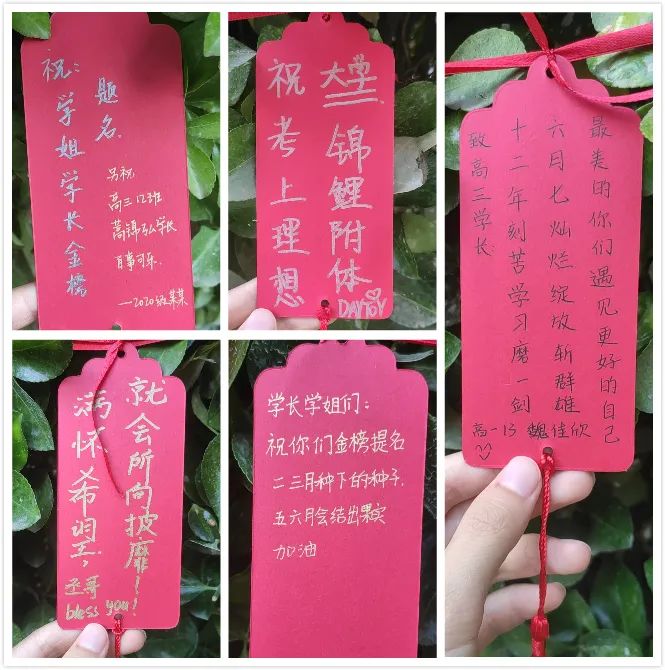 祝：学姐学长金榜
题名.
另祝
高三12班
蒿锦弘学长
百事可乐.
——2020级某某
祝考上理想
大学
锦鲤附体
致高三学长:
十二年刻苦学习磨一剑
六月七灿烂绽放斩群雄
最美的你们遇见更好的自己
高一13 魏佳欣
满怀希望，
就会所向披靡！
丞哥
bless you!
学长学姐们：
祝你们金榜提名
二三月种下的种子.
五六月会结出果实
加油